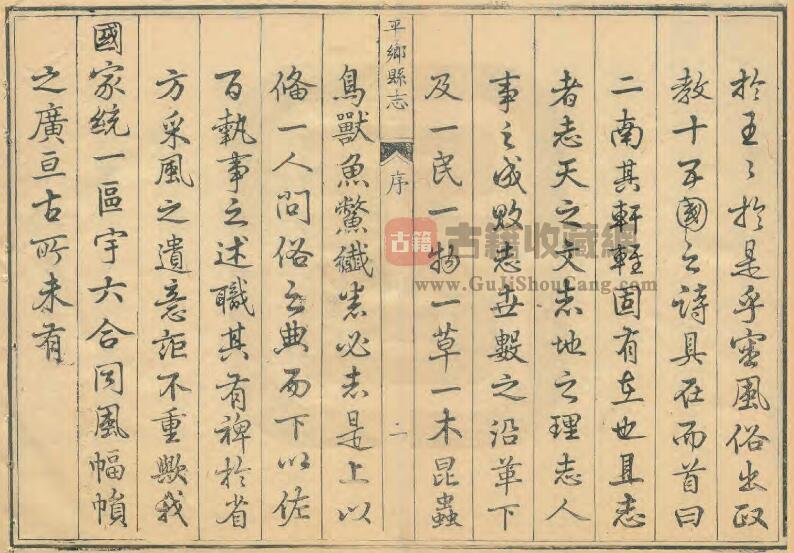 於王〻於是乎審風俗出政
教十五國之詩具在而首曰
二南其軒輊固有在也且志
者志天之文志地之理志人
事之成敗志世數之沿革下
及一民一物一草一木昆蟲
平鄉縣志
序
二
鳥獸魚鱉纖悉必志是上以
俻一人問俗之典而下以佐
百執事之述職其有裨於省
方采風之遺意詎不重歟我
國家統一區宇六合同風幅幀
之廣亘古所未有
古籍
古籍收藏
www.GuJiShouCang.com